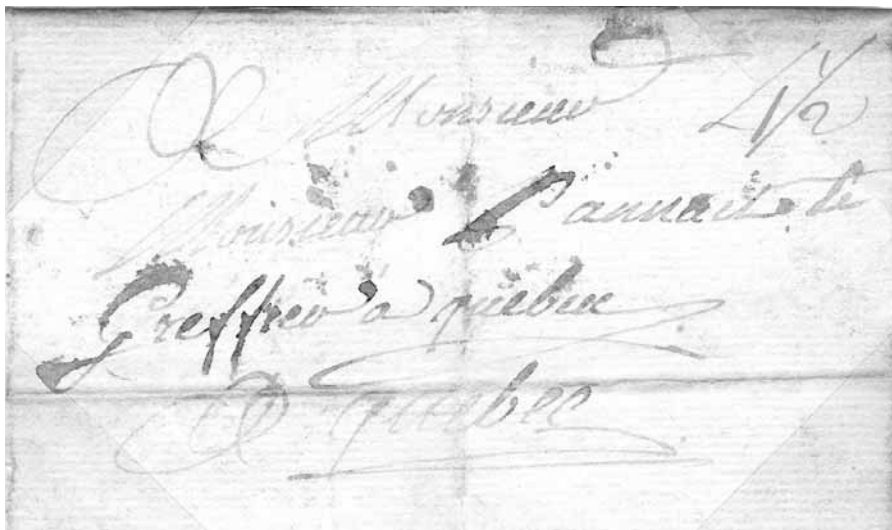 A Monsieur 4½
Monsieur
Greffier a quebec
A quebec